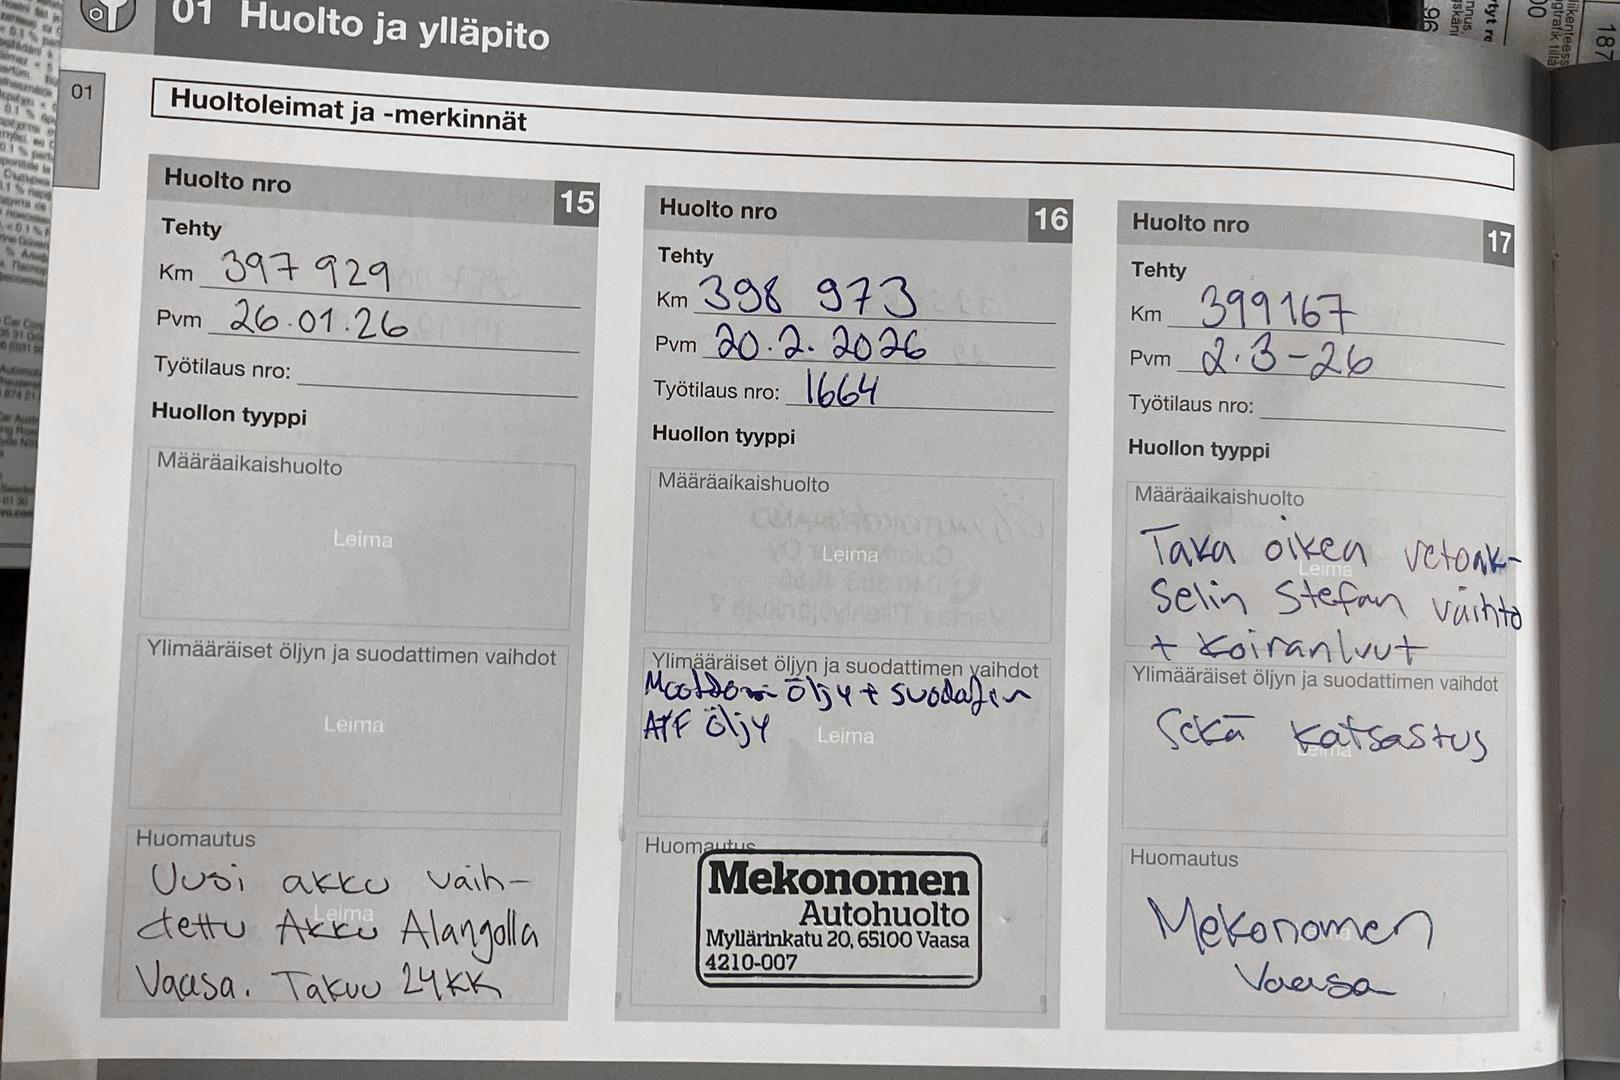 01 Huolto ja ylläpito
01
Huoltoleimat ja -merkinnät
Huolto nro 15
Tehty
Km 397 929
Pvm 26.01.26
Työtilaus nro:
Huollon tyyppi
Määräaikaishuolto
Leima
Ylimääräiset öljyn ja suodattimen vaihdot
Leima
Huomautus
Leima
Uusi akku vaih-
dettu Akku Alangolla
Vaasa. Takuu 24KK
Huolto nro 16
Tehty
Km 398 973
Pvm 20.2.2026
Työtilaus nro: 1664
Huollon tyyppi
Määräaikaishuolto
Leima
Ylimääräiset öljyn ja suodattimen vaihdot
Moottori öljy + suodatin
ATF öljy
Leima
Huomautus
Mekonomen
Autohuolto
Myllärinkatu 20, 65100 Vaasa
4210-007
Huolto nro 17
Tehty
Km 399167
Pvm 2.3-26
Työtilaus nro:
Huollon tyyppi
Määräaikaishuolto
Taka oikea vetoak-
Leima
selin Stefan vaihto
+ koiranluut
Ylimääräiset öljyn ja suodattimen vaihdot
Sekä katsastus
Leima
Huomautus
Mekonomen
Vaasa